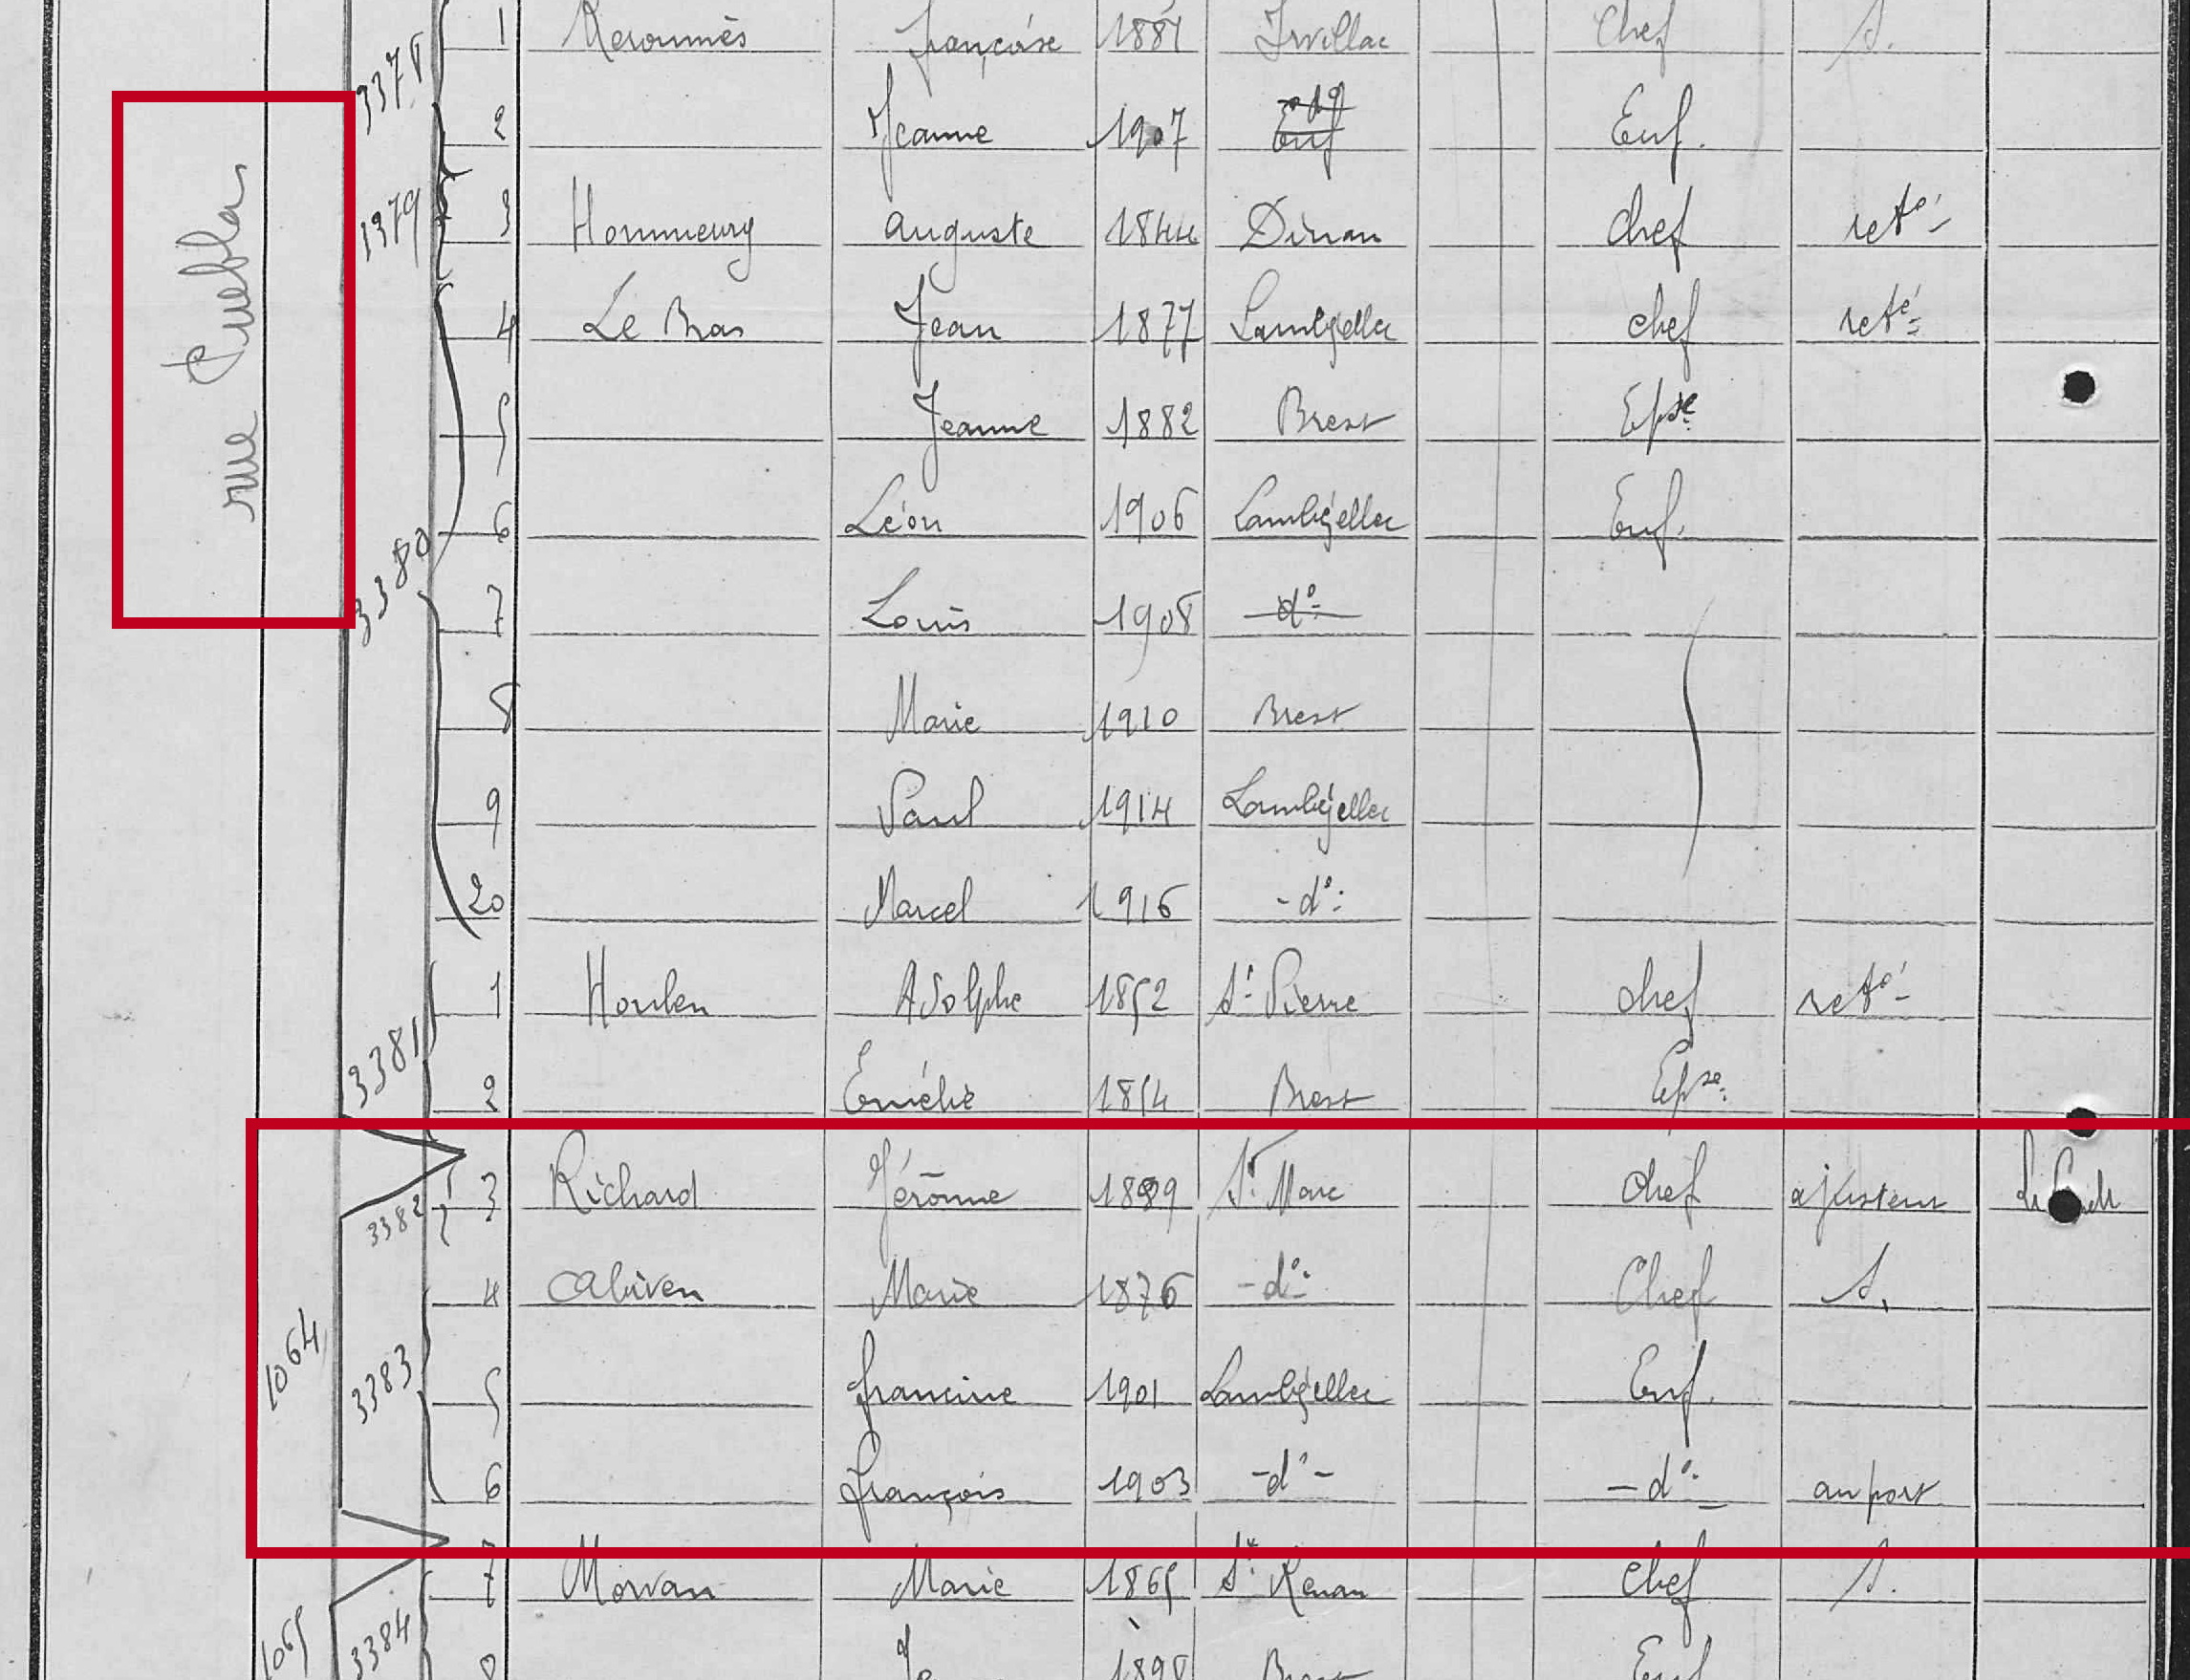 rue Puebla
3378 1 Keroumès Françoise 1881 Irvillac Chef S.
2 Jeanne 1907 Enf.
3379 3 Hommeury Auguste 1844 Dinan chef reté
4 Le Bras Jean 1877 Lambézellec chef reté
5 Jeanne 1882 Brest Epse
3380 6 Léon 1906 Lambézellec Enf.
7 Louis 1908 -d°-
8 Marie 1910 Brest
9 Paul 1914 Lambézellec
20 Marcel 1916 -d°-
1 Houlen Adolphe 1852 St Pierre chef reté
3381 2 Emélie 1854 Brest Epse
3382 3 Richard Jérôme 1889 St Marc chef ajusteur
4 Abiven Marie 1876 -d°- Chef S.
1064 3383 5 Francine 1901 Lambézellec Enf.
6 François 1903 -d°- -d°- au port
7 Morvan Marie 1865 St Renan chef S.
1065 3384 8 Brest Enf